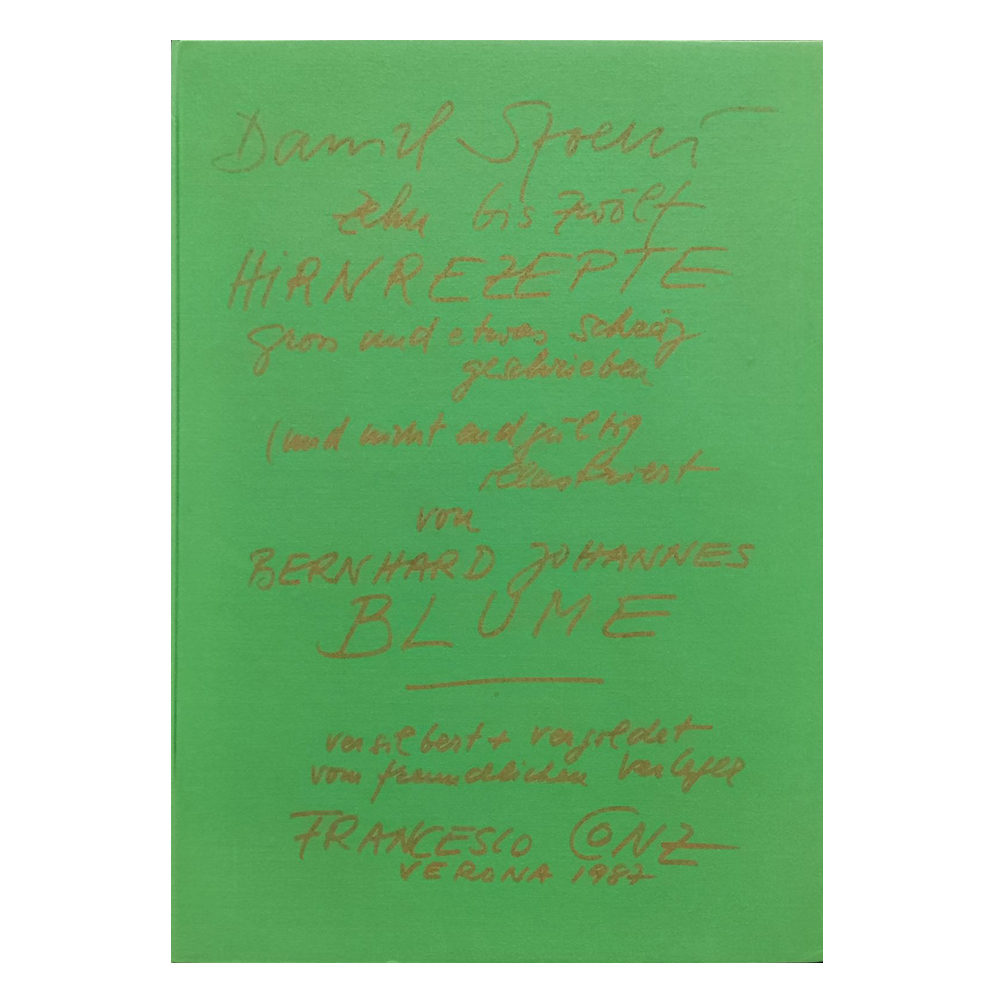 Daniel Spoerri
zehn bis zwölf
HiRNREZEPTE
gross und etwas schräg
geschrieben
(und nicht endgültig
illustriert
von
BERNHARD JOHANNES
BLUME
versilbert + vergoldet
vom freundlichen Verleger
FRANCESCO CONZ
VERONA 1987